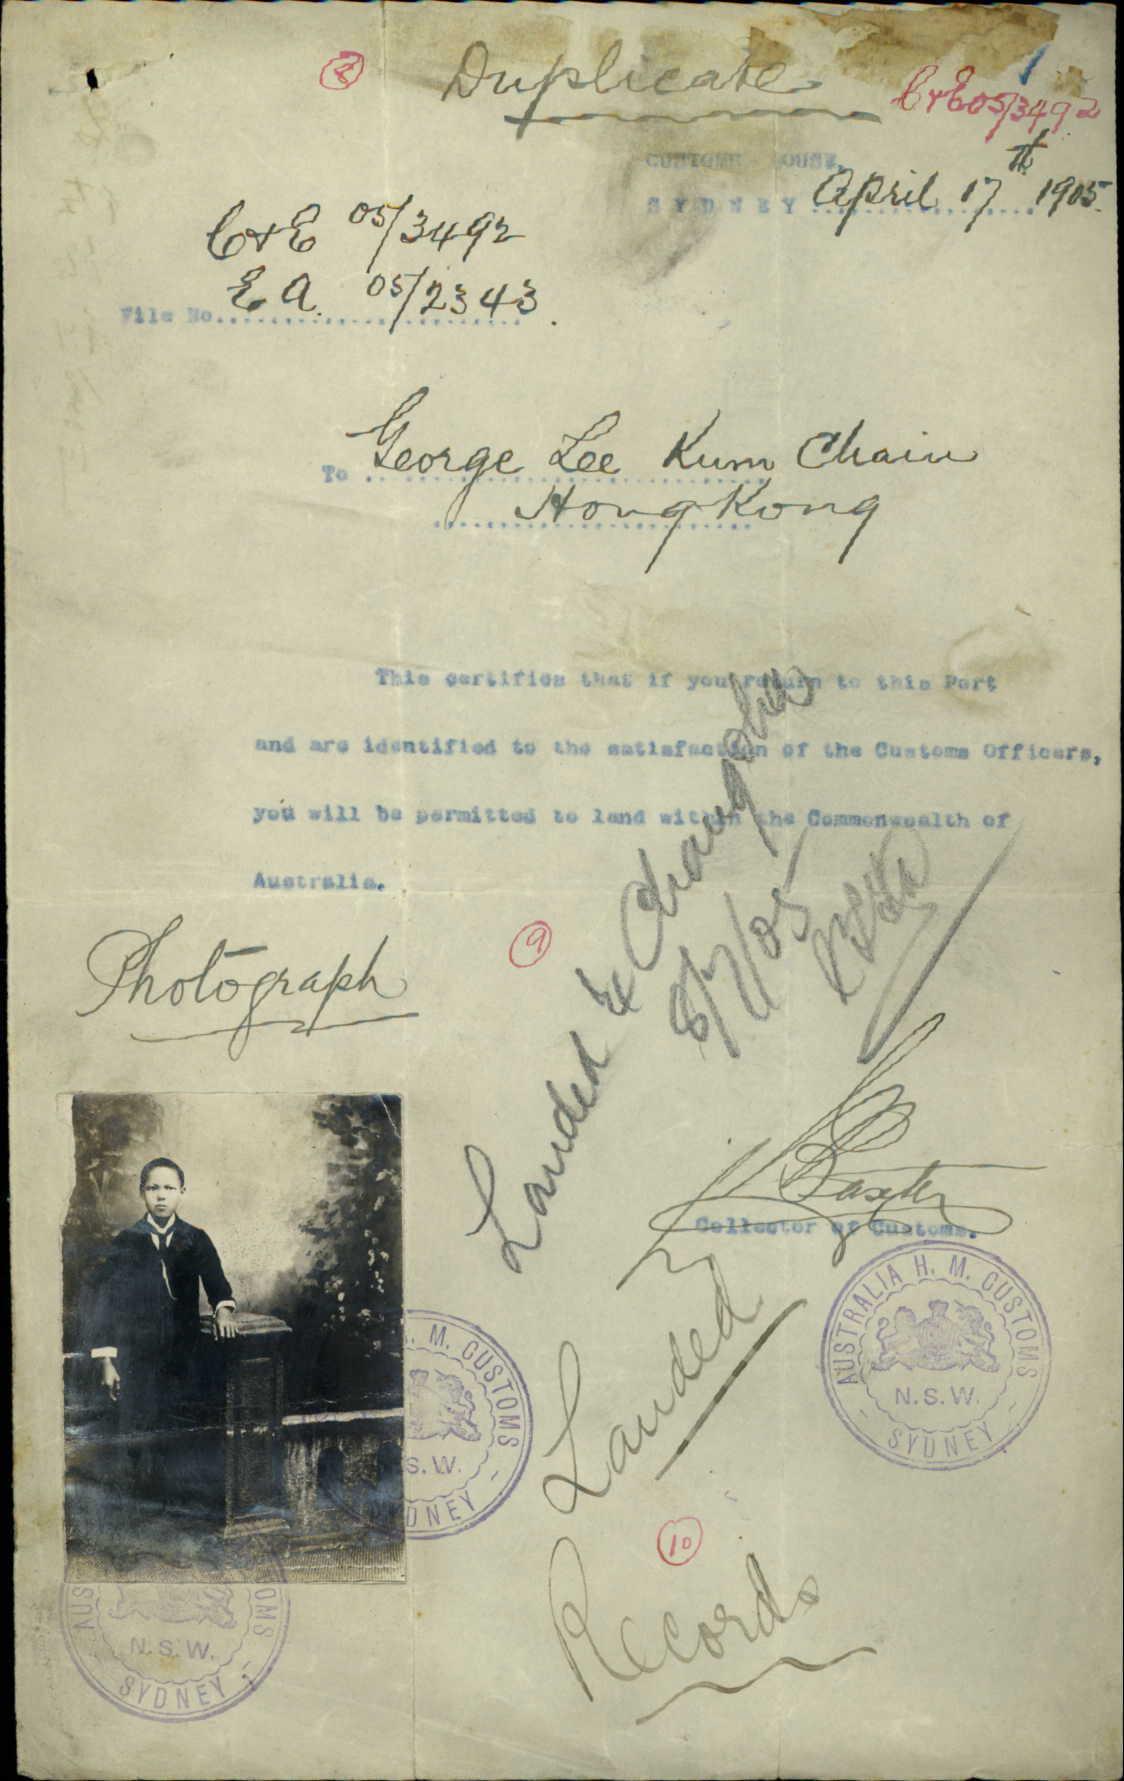 8
Duplicate
C+E 05/3492
CUSTOMS HOUSE,
SYDNEY April 17th 1905.
C+E 05/3492
E A. 05/2343
File No.
To George Lee Kum Chain
HongKong
This certifies that if you return to this Port
and are identified to the satisfaction of the Customs Officers,
you will be permitted to land within the Commonwealth of
Australia.
Photograph
9
Landed Ex Changsha
8/7/05
Baxter
Collector of Customs.
AUSTRALIA H. M. CUSTOMS
N.S.W.
SYDNEY
. M. CUSTOMS
S.W.
YDNEY
Landed
10
Records
AUS
OMS
N.S.W.
SYDNEY